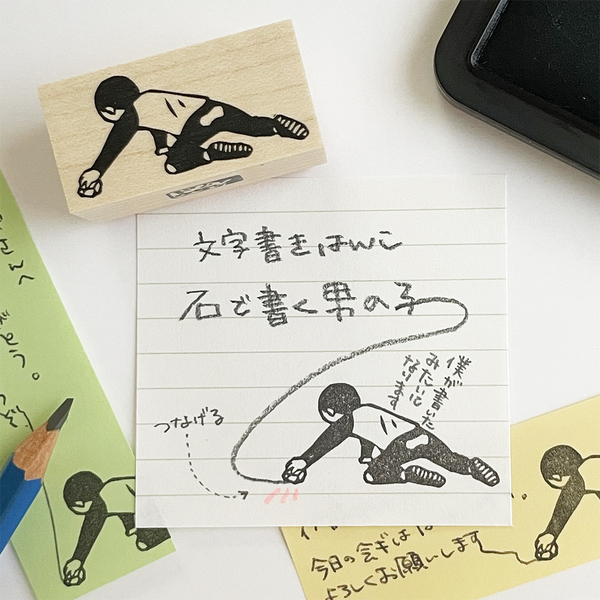 文字書きはんこ
石で書く男の子
僕が書いた
みたいに
なります
つなげる
さんへ
。
今日の会ぎは
よろしくお願いします